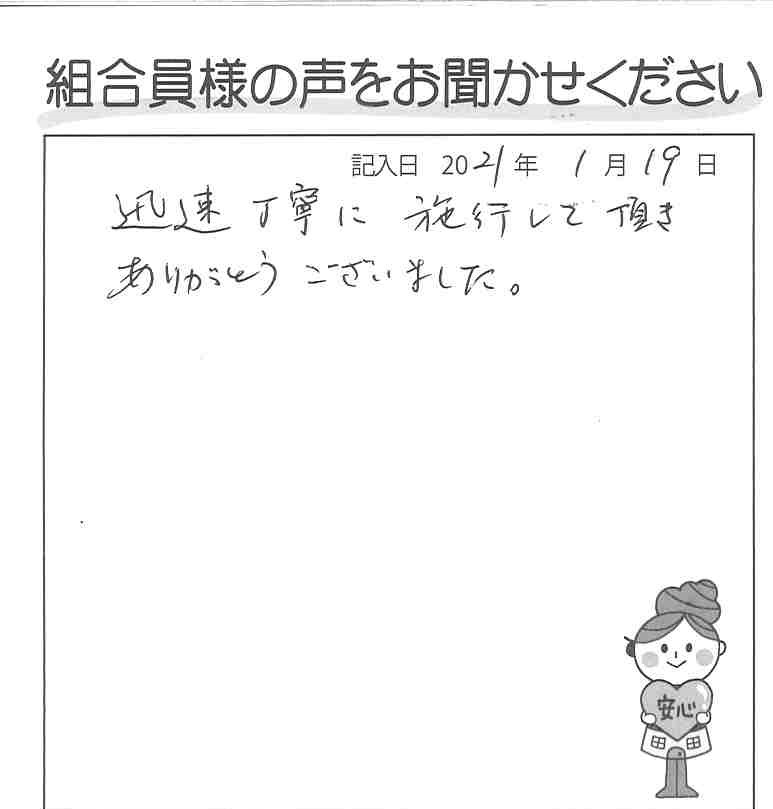 組合員様の声をお聞かせください
記入日 2021年 1月19日
迅速丁寧に施行して頂き
ありがとうございました。
安心